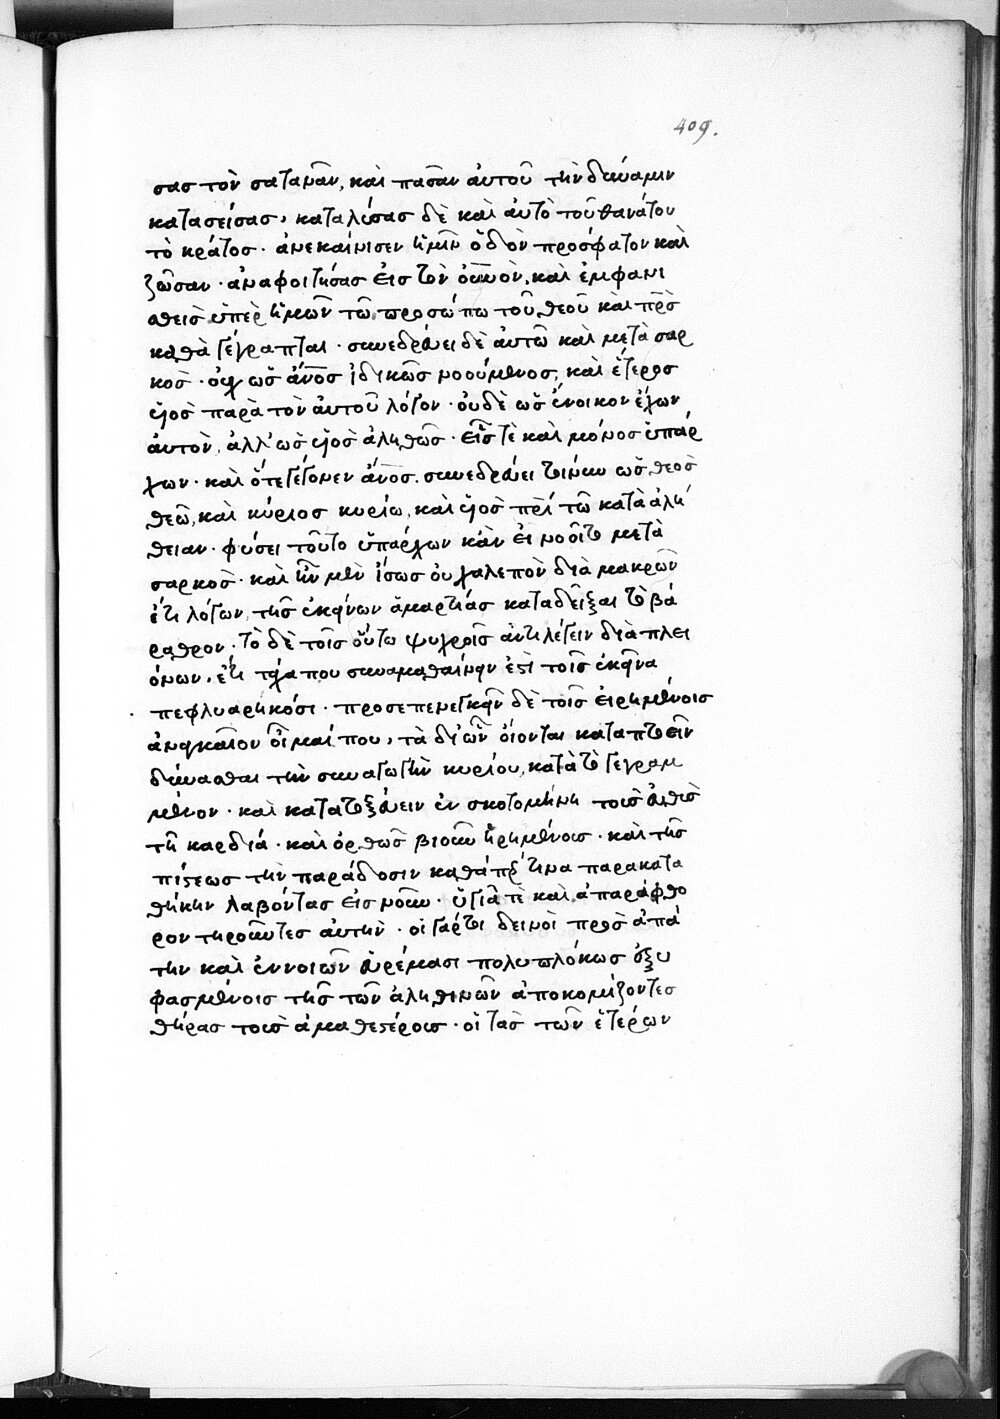 409.
σας τὸν σατανᾶν, καὶ πᾶσαν αὐτοῦ τὴν δύναμιν
κατασείσας, καταλύσας δὲ καὶ αὐτὸ τοῦ θανάτου
τὸ κράτος · ἀνεκαίνισεν ἡμῖν ὁδὸν πρόσφατον καὶ
ζῶσαν · ἀναφοιτήσας εἰς τὸν οὐνὸν, καὶ ἐμφανι
σθεὶς ὑπὲρ ἡμῶν τῶ προσώπω τοῦ θεοῦ καὶ πρς
καθὰ γέγραπται · συνεδρεύει δὲ αὐτῶ καὶ μετὰ σαρ
κὸς · οὐχ ὡς ἄνος ἰδικῶς νοούμενος, καὶ ἕτερος
υἱὸς παρὰ τὸν αὐτοῦ λόγον · οὐδὲ ὡς ἔνοικον ἔχων
αὐτὸν, ἀλλ' ὡς υἱὸς ἀληθῶς · εἷς τὲ καὶ μόνος ὑπάρ
χων · καὶ ὅτε γέγονεν ἄνος · συνεδρεύει τοίνυν ὡς θεὸς
θεῶ, καὶ κύριος κυρίω, καὶ υἱὸς πρὶ τῶ κατὰ ἀλή
θειαν · φύσει τοῦτο ὑπάρχων κἂν εἰ νοοῖτο μετὰ
σαρκὸς · καὶ ἦν μὲν ἴσως οὐ χαλεπὸν διὰ μακρῶν
ἔτι λόγων, τῆς ἐκείνων ἁμαρτίας καταδεῖξαι τὸ βά
ραθρον · τὸ δὲ τοῖς οὕτω ψυχροῖς ἀντιλέγειν διὰ πλει
όνων, ἔτι τάχα που συναμαθαίνειν ἐστὶ τοῖς ἐκεῖνα
πεφλυαρηκόσι · προσεπενεγκεῖν δὲ τοῖς εἰρημένοις
ἀναγκαῖον οἶμαί που, τὰ δι' ὧν οἴονται καταπτοεῖν
δύνασθαι τὴν συναγωγὴν κυρίου, κατὰ τὸ γεγραμ
μένον · καὶ κατατοξεύειν ἐν σκοτομήνη τοὺς εὐθεῖς
τῆ καρδία · καὶ ὀρθῶς βιοῦν ἡρημένοις · καὶ τῆς
πίστεως τὴν παράδοσιν καθάπερ τινα παρακατα
θήκην λαβόντας εἰς νοῦν · ὑγιᾶ τὲ καὶ ἀπαράφθο
ρον τηροῦντες αὐτὴν · οἱ γάρ τοι δεινοὶ πρὸς ἀπά
την καὶ ἐννοιῶν εὑρέμασι πολυπλόκως ὀξυ
φασμένοις τῆς τῶν ἀληθινῶν ἀποκομίζοντες
θήρας τοὺς ἀμαθεστέρους · οἱ τὰς τῶν ἑτέρων